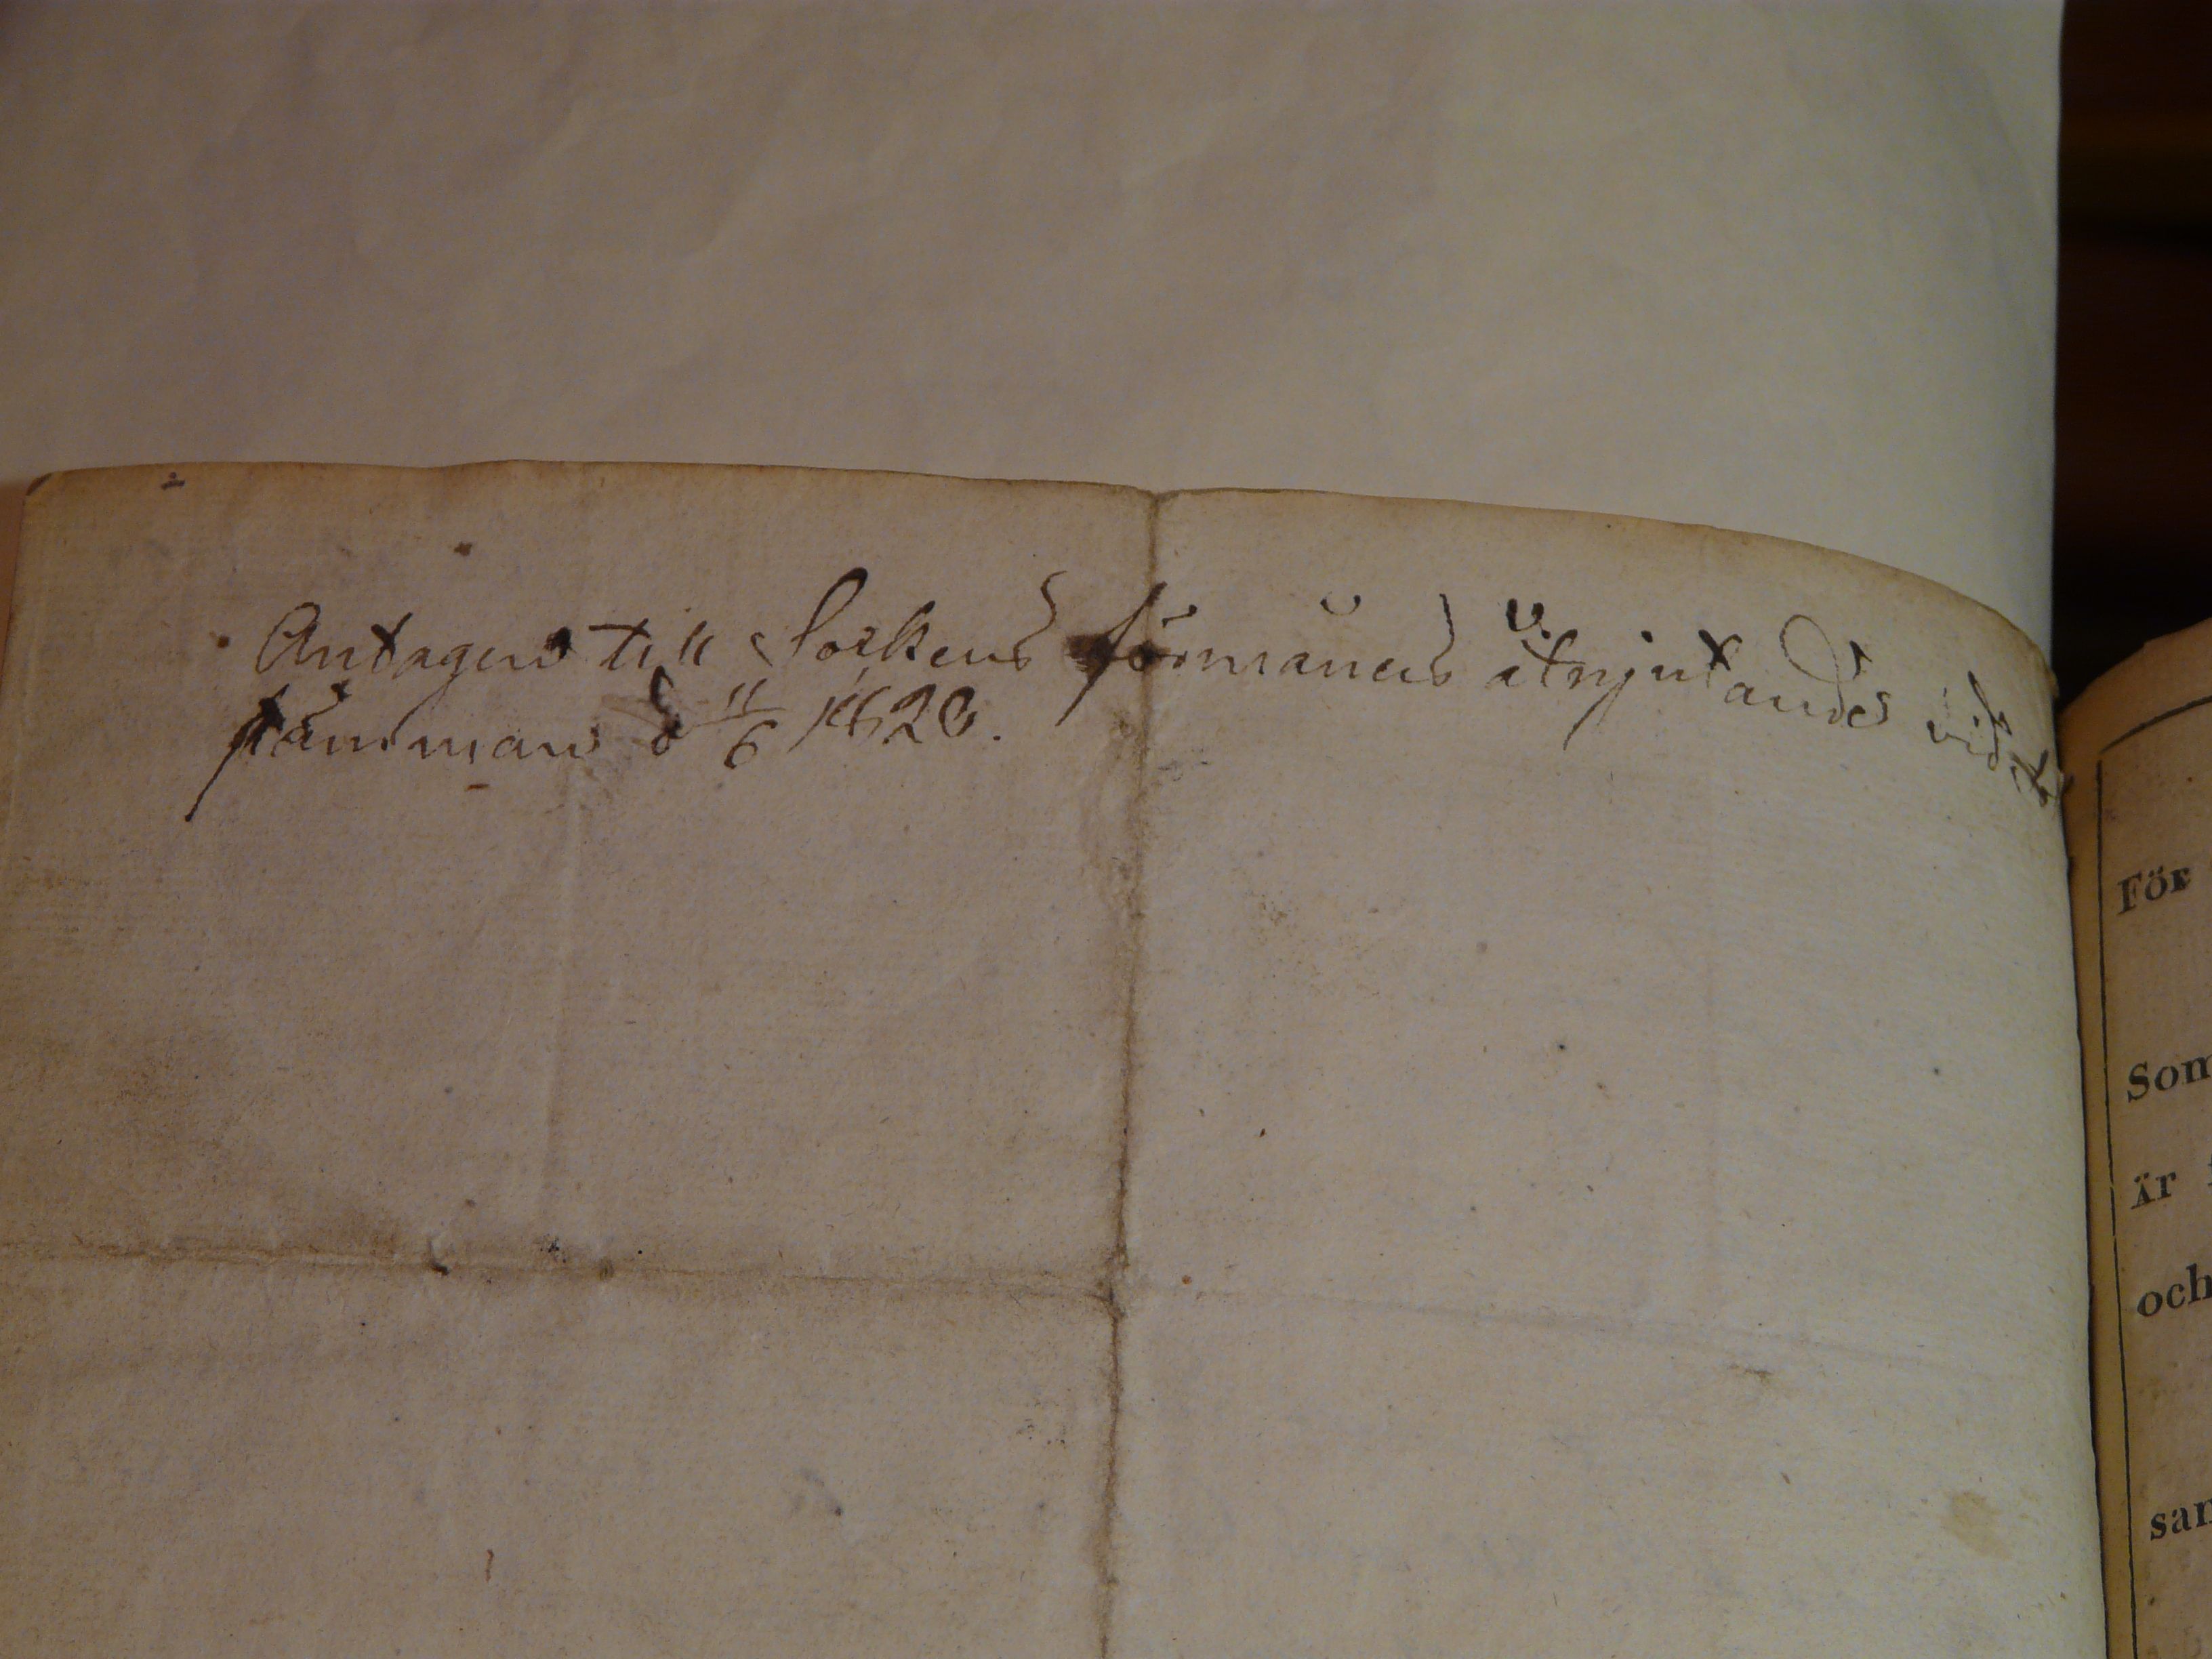 Antagen till Sockens förmåners åtnjutande vid
stämman d 11/6 1820.
För
Som
är
och